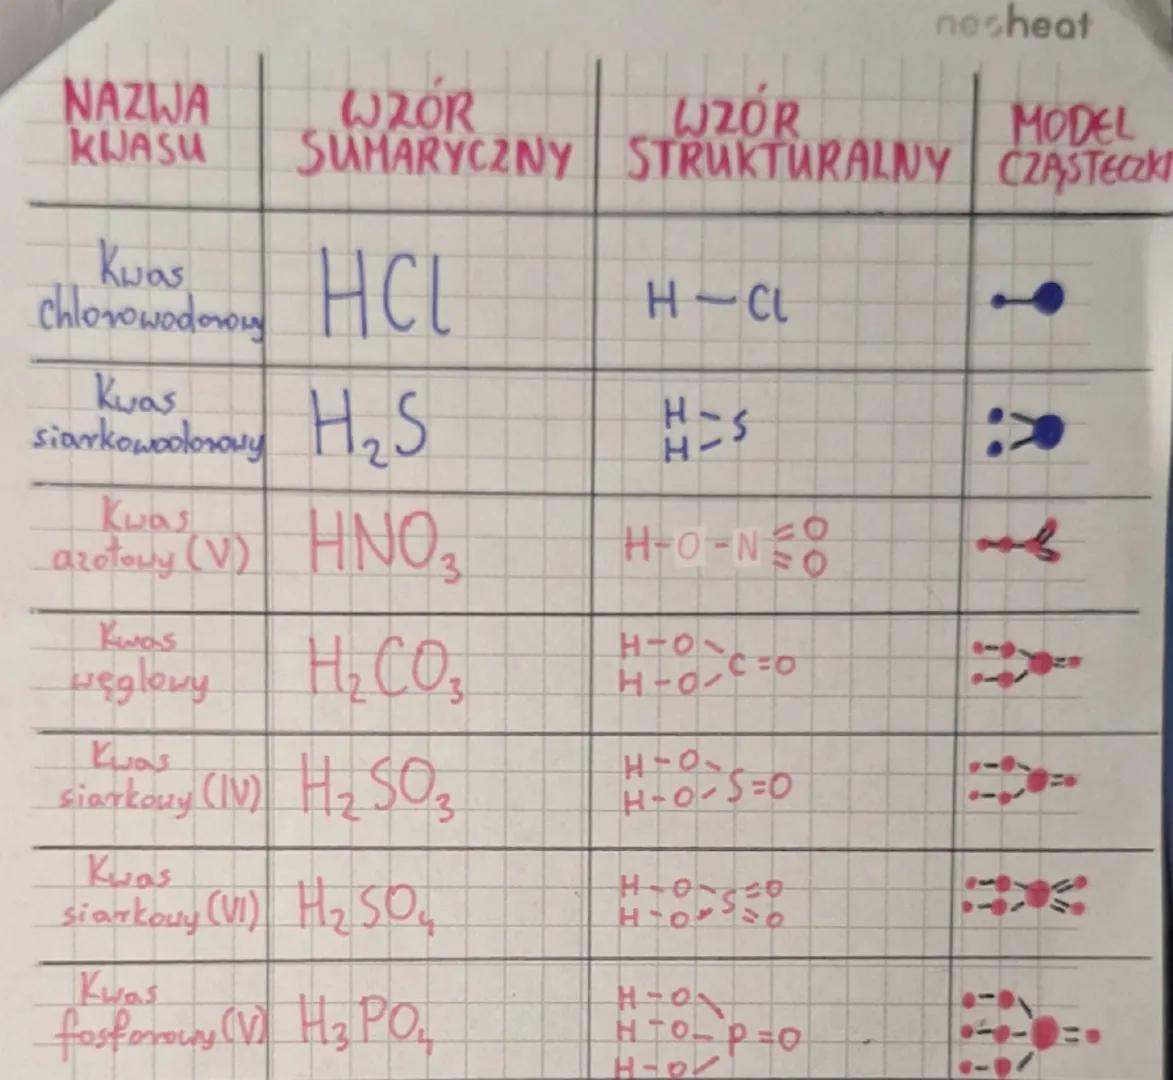 nesheat
NAZWA KWASU
WZÓR SUMARYCZNY
WZÓR STRUKTURALNY
MODEL CZĄSTECZKI
Kwas chlorowodorowy
HCl
H — Cl
Kwas siarkowodorowy
H₂S
H - S
H -
Kwas azotowy (V)
HNO₃
H - O - N = O
= O
Kwas węglowy
H₂CO₃
H - O \ C = O
H - O /
Kwas siarkowy (IV)
H₂SO₃
H - O \ S = O
H - O /
Kwas siarkowy (VI)
H₂SO₄
H - O - S = O
H - O - = O
Kwas fosforowy (V)
H₃PO₄
H - O \
H - O - P = O
H - O /